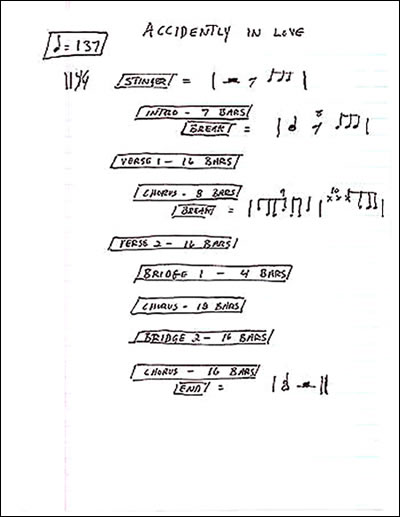 ACCIDENTLY IN LOVE
♩ = 137
STINGER =
INTRO - 7 BARS
BREAK =
VERSE 1 - 16 BARS
CHORUS - 8 BARS
BREAK =
VERSE 2 - 16 BARS
BRIDGE 1 - 4 BARS
CHORUS - 18 BARS
BRIDGE 2 - 16 BARS
CHORUS - 16 BARS
END =